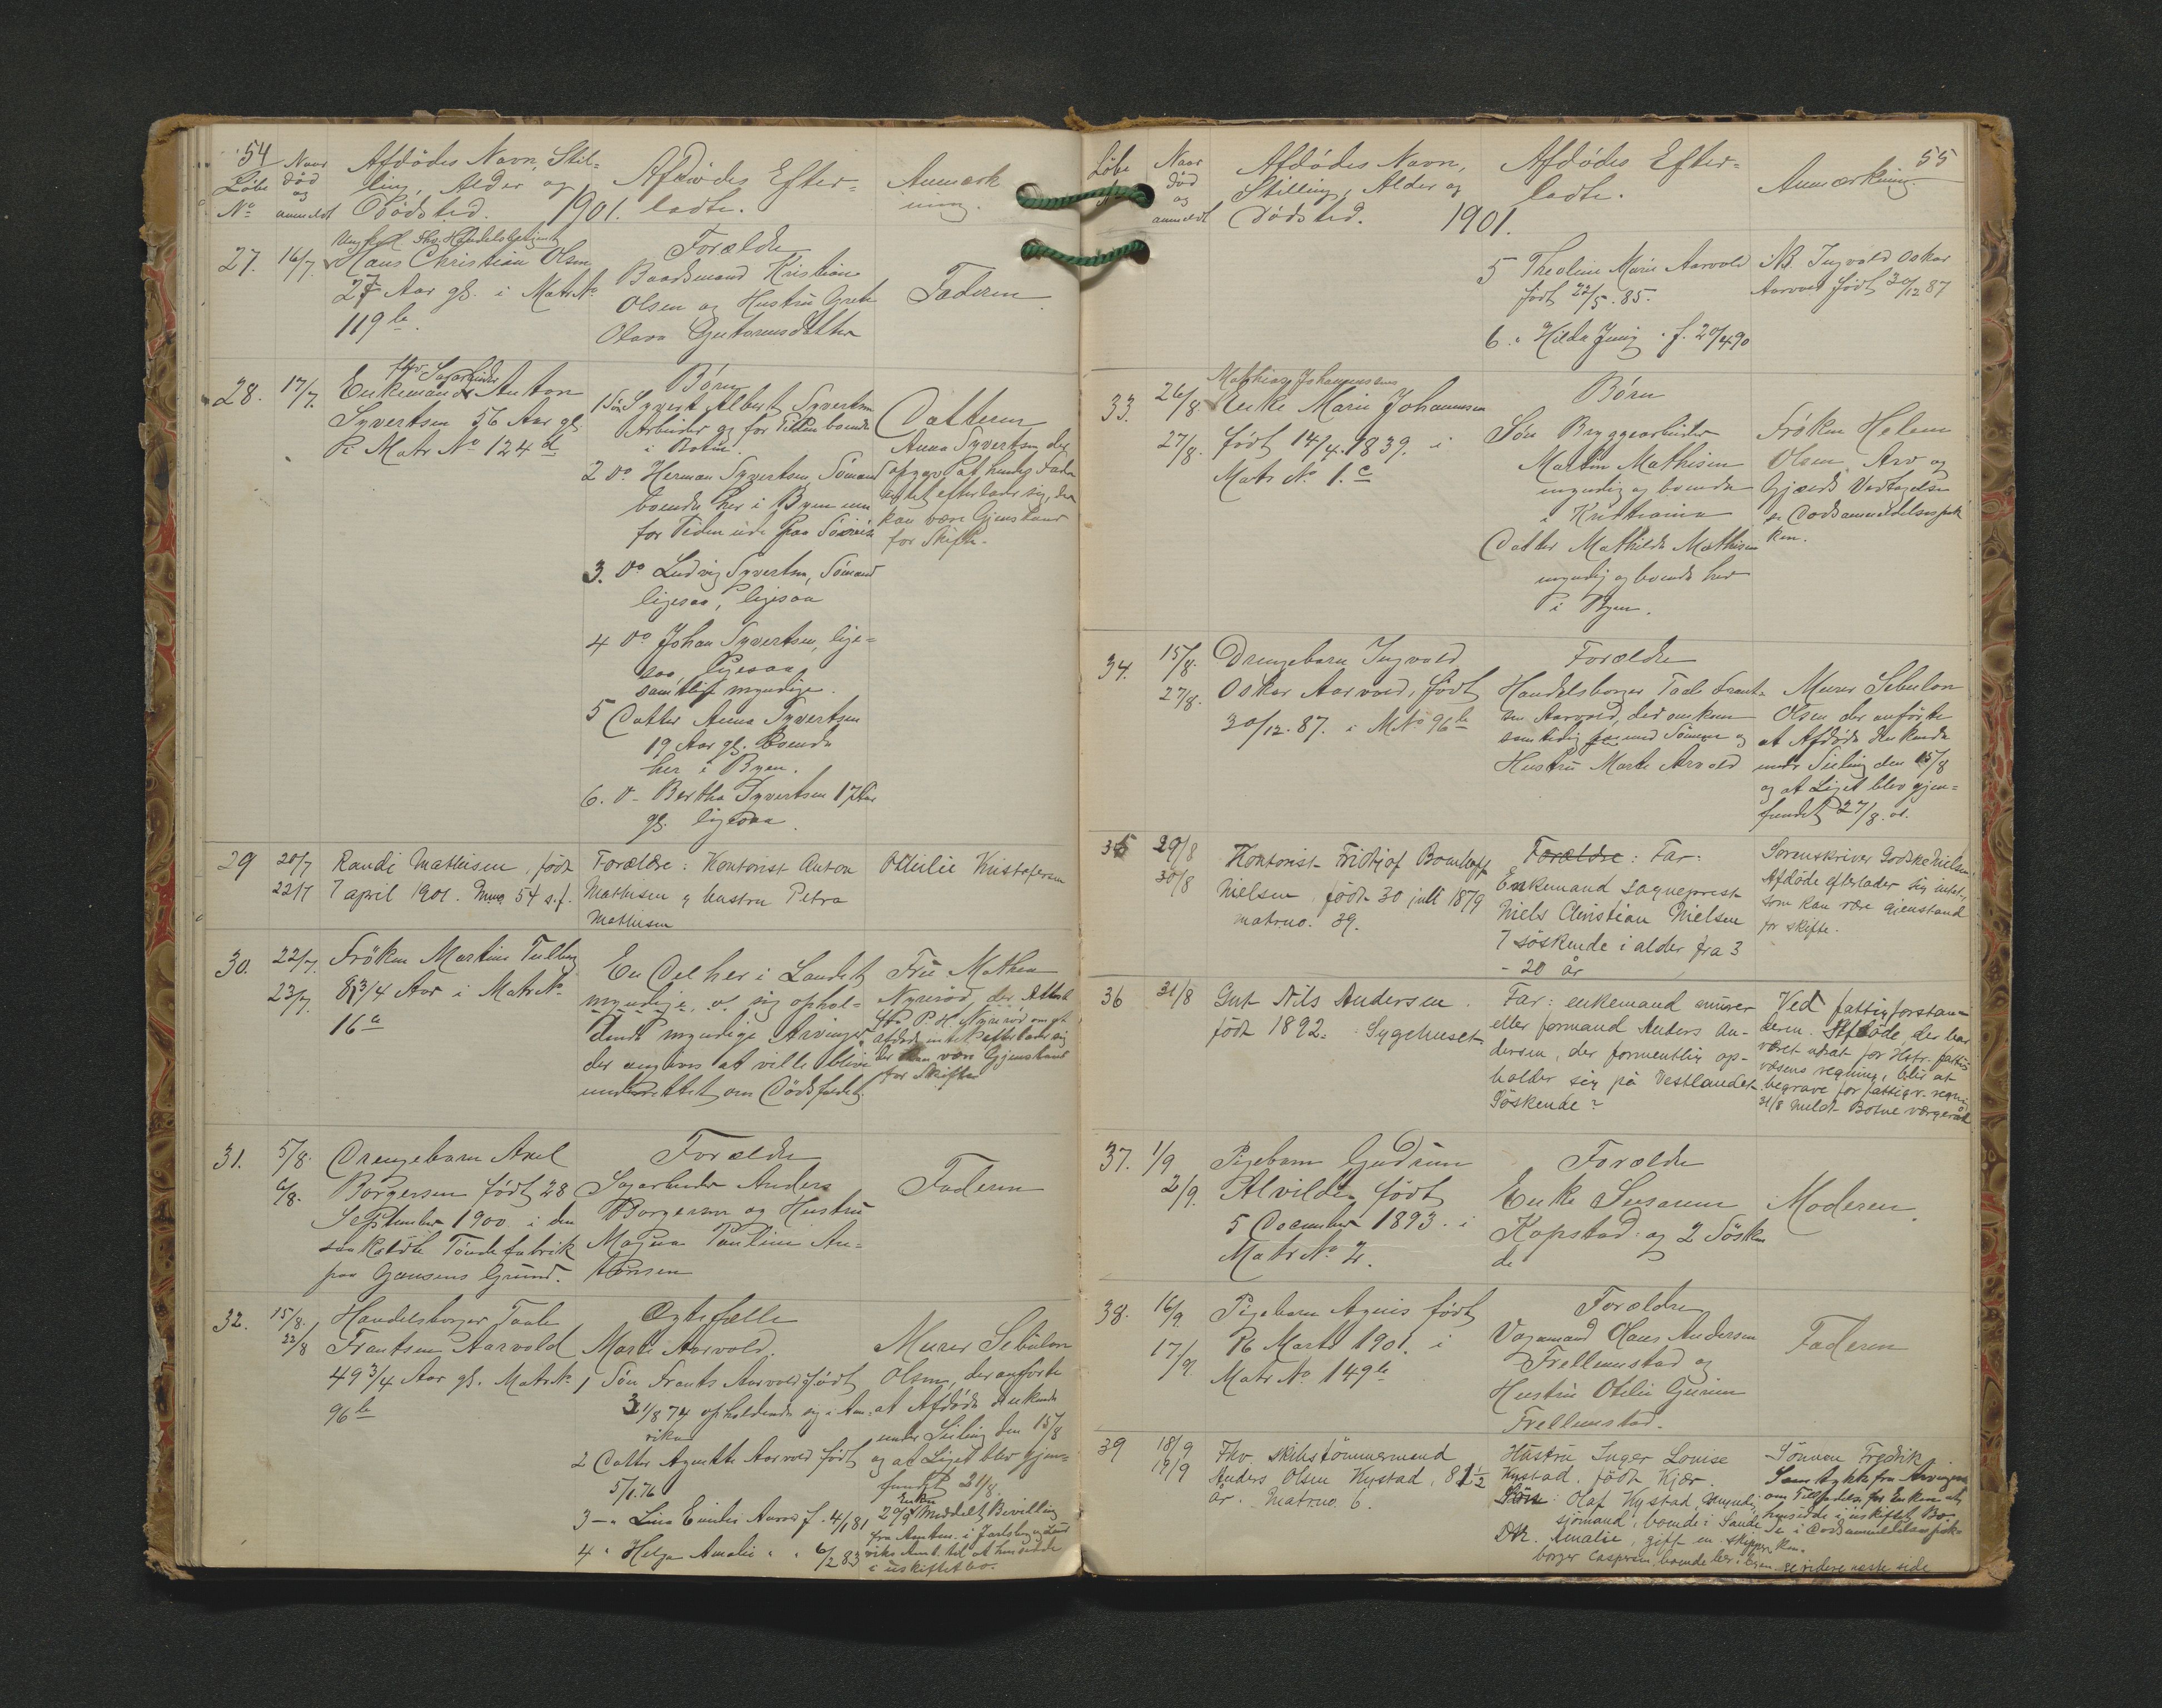 54
Løbe No
Naar død og anmeldt
Afdødes Navn, Stil-
ling, Alder og
Dødsted.
1901.
Afdødes Efter-
ladte.
Anmærk
ning.
27.
16/7.
Ungkarl fhv. Handelsbetjent
Hans Christian Olsen
27 Aar gl. i Matr No
119 b.
Forældre
Baadsmand Kristian
Olsen og Hustru Grete
Olava Guttormsdatter
Faderen
28.
17/7.
fhv Sagarbeider
Enkemand Anton
Syvertsen 56 Aar gl.
i Matr No 124 d
Børn
1 Søn Syvert Albert Syvertsen
Arbeider og for Tiden boende
i Botne.
2 Do Herman Syvertsen, Sömand
boende her i Byen men
for Tiden ude paa Söreise
3. Do Ludvig Syvertsen, Sömand
ligesaa, ligesaa
4 Do Johan Syvertsen, lige-
saa, ligesaa
samtlige myndige.
5 Datter Anna Syvertsen
19 Aar gl. boende
her i Byen.
6. D- Bertha Syvertsen 17 Aar
gl. ligesaa.
Datteren
Anna Syvertsen, der
opgav at hendes Fader
intet efterlader sig, der
kan være Gjenstand
for Skifte.
29
20/7
22/7
Randi Mathisen, født
7 april 1901. 54 a.f.
Forældre: Kontorist Anton
Mathisen og hustru Petra
Mathisen
Othilie Kristofersen
30.
22/7.
23/7
Frøken Martine
83/4 Aar i Matr No
16 a
En Del her i Landet
myndige, og sig ophol-
dende myndige Arvinger
der angives at ville blive
underrettet om Dødsfaldet.
Fru Mathea
Nyrerød, der
P. H. Nyrerød
Afdøde intet efterlader sig
der kan være Gjenstand
for Skifte
31.
5/8.
6/8.
Drengebarn Axel
Borgersen født 28
September 1900 i den
saakaldte Tøndefabrik
paa Gausens Grund.
Forældre
Sagarbeider Anders
Borgersen og Hustru
Magna Pauline An-
tonsen
Faderen
32.
15/8.
22/8
Handelsborger Taale
Frantsen Aarvold
49 3/4 Aar gl. Matr No
96 b
Ægtefælle
Marte Aarvold.
1 Søn Frants Aarvold født
31/8 74 opholdende sig i Ame-
rika
2 Datter Agnethe Aarvold født
5/1.76
3 — " Lina Emilie Aarvold f. 4/1 81
4 " Helga Amalie " " 6/2 83
Murer Sebulon
Olsen, der anførte
at Afdøde druknede
under Seiling den 15/8
og at Liget blev gjen-
fundet 21/8.
20/9 Enken Meddelt Bevilling
fra Amtm. i Jarlsberg og Laur
viks Amt til at hensidde
i uskiftet bo.
55
Løbe
Naar død og anmeldt
Afdødes Navn,
Stilling, Alder og
Dødsted.
1901.
Afdødes Efter-
ladte.
Anmærkning.
5 Theoline Marie Aarvold
født 22/5. 85.
6. " Hilda Jenny " f. 20/4 90
NB. Ingvald Oskar
Aarvold født 30/12 87
33.
26/8.
27/8.
Mathias Johannesens
Enke Marie Johannesen
født 14/4. 1839. i
Matr No 1. c
Børn
Søn Bryggearbeider
Martin Mathisen
myndig og boende
i Kristiania
Datter Mathilde Mathisen
myndig og boende her
i Byen.
Frøken Helene
Olsen. Arv og
Gjælds Vedtagelse
se Dødsanmeldelsespak
ken.
34.
15/8.
27/8.
Drengebarn Ingvald
Oskar Aarvold, født
30/12. 87. i M No 96 b
Forældre
Handelsborger Taale Frant-
sen Aarvold, der omkom
samtidig med Sønnen og
Hustru Marte Arvold
Murer Sebulon
Olsen der anførte
at Afdøde druknede
under Seiling den 15/8
og at Liget blev gjen-
fundet 27/8. 01.
35
29/8
30/8
Kontorist Fridtjof Bomhoff
Nielsen, født 30 juli 1879
matr.no. 39.
Forældre: Far:
Enkemand sogneprest
Niels Christian Nielsen
7 søskende i alder fra 3
- 20 år
Sorenskriver Godske Nielsen.
Afdøde efterlader sig intet,
som kan være gjenstand
for skifte.
36
31/8
Gut Nils Andersen.
født 1892. Sygehuset.
Far: enkemand murer
eller formand Anders An-
dersen, der formentlig op-
holder sig på Vestlandet.
Søskende?
Ved fattigforstan-
deren. Afdøde, der har
været utsat for Hstr. fattig
væsens regning, blir at
begrave for fattigv. regning
31/8 meldt Botne værgeråd.
37.
1/9
2/9.
Pigebarn Gudrun
Alvilde født
5 December 1893. i
Matr No 2.
Forældre
Enke Susanne
Kopstad og 2 Søsken
de
Moderen.
38.
16/9.
17/9.
Pigebarn Agnes født
16 Marts 1901. i
Matr No 149 b
Forældre
Vognmand Hans Andersen
Frellumstad og
Hustru Otilie Gurine
Frellumstad.
Faderen
39
18/9
19/9
Fhv. skibstømmermand
Anders Olsen Nystad, 81 1/2
år. Matr.no. 6.
Hustru Inger Lovise
Nystad. født Kjær.
Søn: Olaf Nystad, myndig
sjømand, boende i Sande
Dtr. Amalie, gift m. skipper
borger Caspersen, boende her i byen
Sønnen Fredrik.
Samtykke fra Arvingerne
om Tilladelse for Enken at
hensidde i uskiftet Bo
se i Dødsanmeldelsespak
ken.
se videre næste side